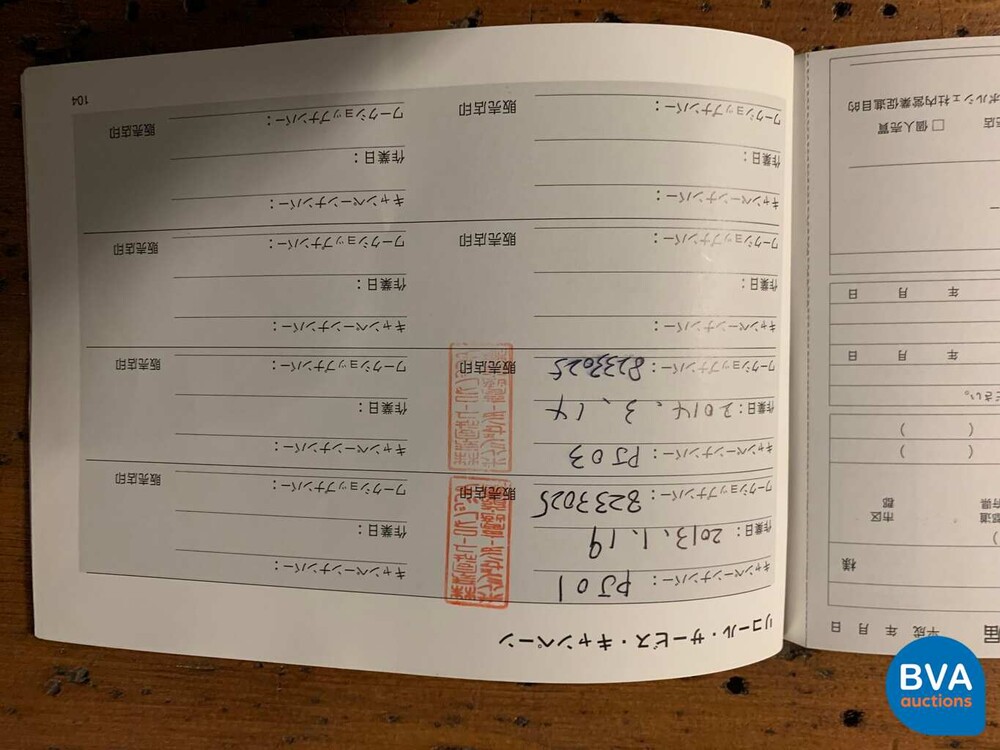 届 平成 年 月 日
様
)
都道 市区
府県 郡
( )
( )
ださい。
年 月 日
年 月 日
店 □ 個人売買
ポルシェ社内営業促進目的
リコール・サービス・キャンペーン
キャンペーンナンバー： PJ01
作業日： 2013.1.19
ワークショップナンバー： 8233025 販売店印
キャンペーンナンバー：
作業日：
ワークショップナンバー： 販売店印
キャンペーンナンバー： PJ03
作業日： 2014.3.14
ワークショップナンバー： 8233025 販売店印
キャンペーンナンバー：
作業日：
ワークショップナンバー： 販売店印
キャンペーンナンバー：
作業日：
ワークショップナンバー： 販売店印
キャンペーンナンバー：
作業日：
ワークショップナンバー： 販売店印
キャンペーンナンバー：
作業日：
ワークショップナンバー： 販売店印
キャンペーンナンバー：
作業日：
ワークショップナンバー： 販売店印
104
BVA
auctions